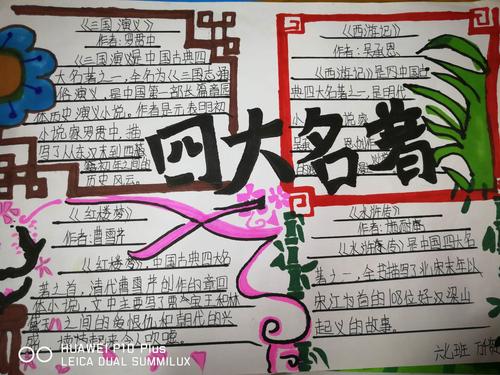 《三国演义》
作者:罗贯中
《三国演义》是中国古典四
大名著之一,全名为《三国志通
俗演义》是中国第一部长篇章回
体历史演义小说。作者是元末明初
小说家罗贯中,描
写了从东汉末到西晋
初年之间的
历史风云。
《西游记》
作者:吴承恩
《西游记》是中国古
典四大名著之一,是明代
小说家
吴承恩
四大名著
《红楼梦》
作者:曹雪芹
《红楼梦》,中国古典四大名
著之首,清代曹雪芹创作的章回
体小说,文中主要写了贾宝玉和林
黛玉之间的爱恨仇和朝代的兴
《水浒传》
作者:施耐庵
《水浒传》是中国四大名
著之一,全书描写了北宋末年以
宋江为首的108位好汉梁山
起义的故事。
六七班
HUAWEI P10 Plus
LEICA DUAL SUMMILUX